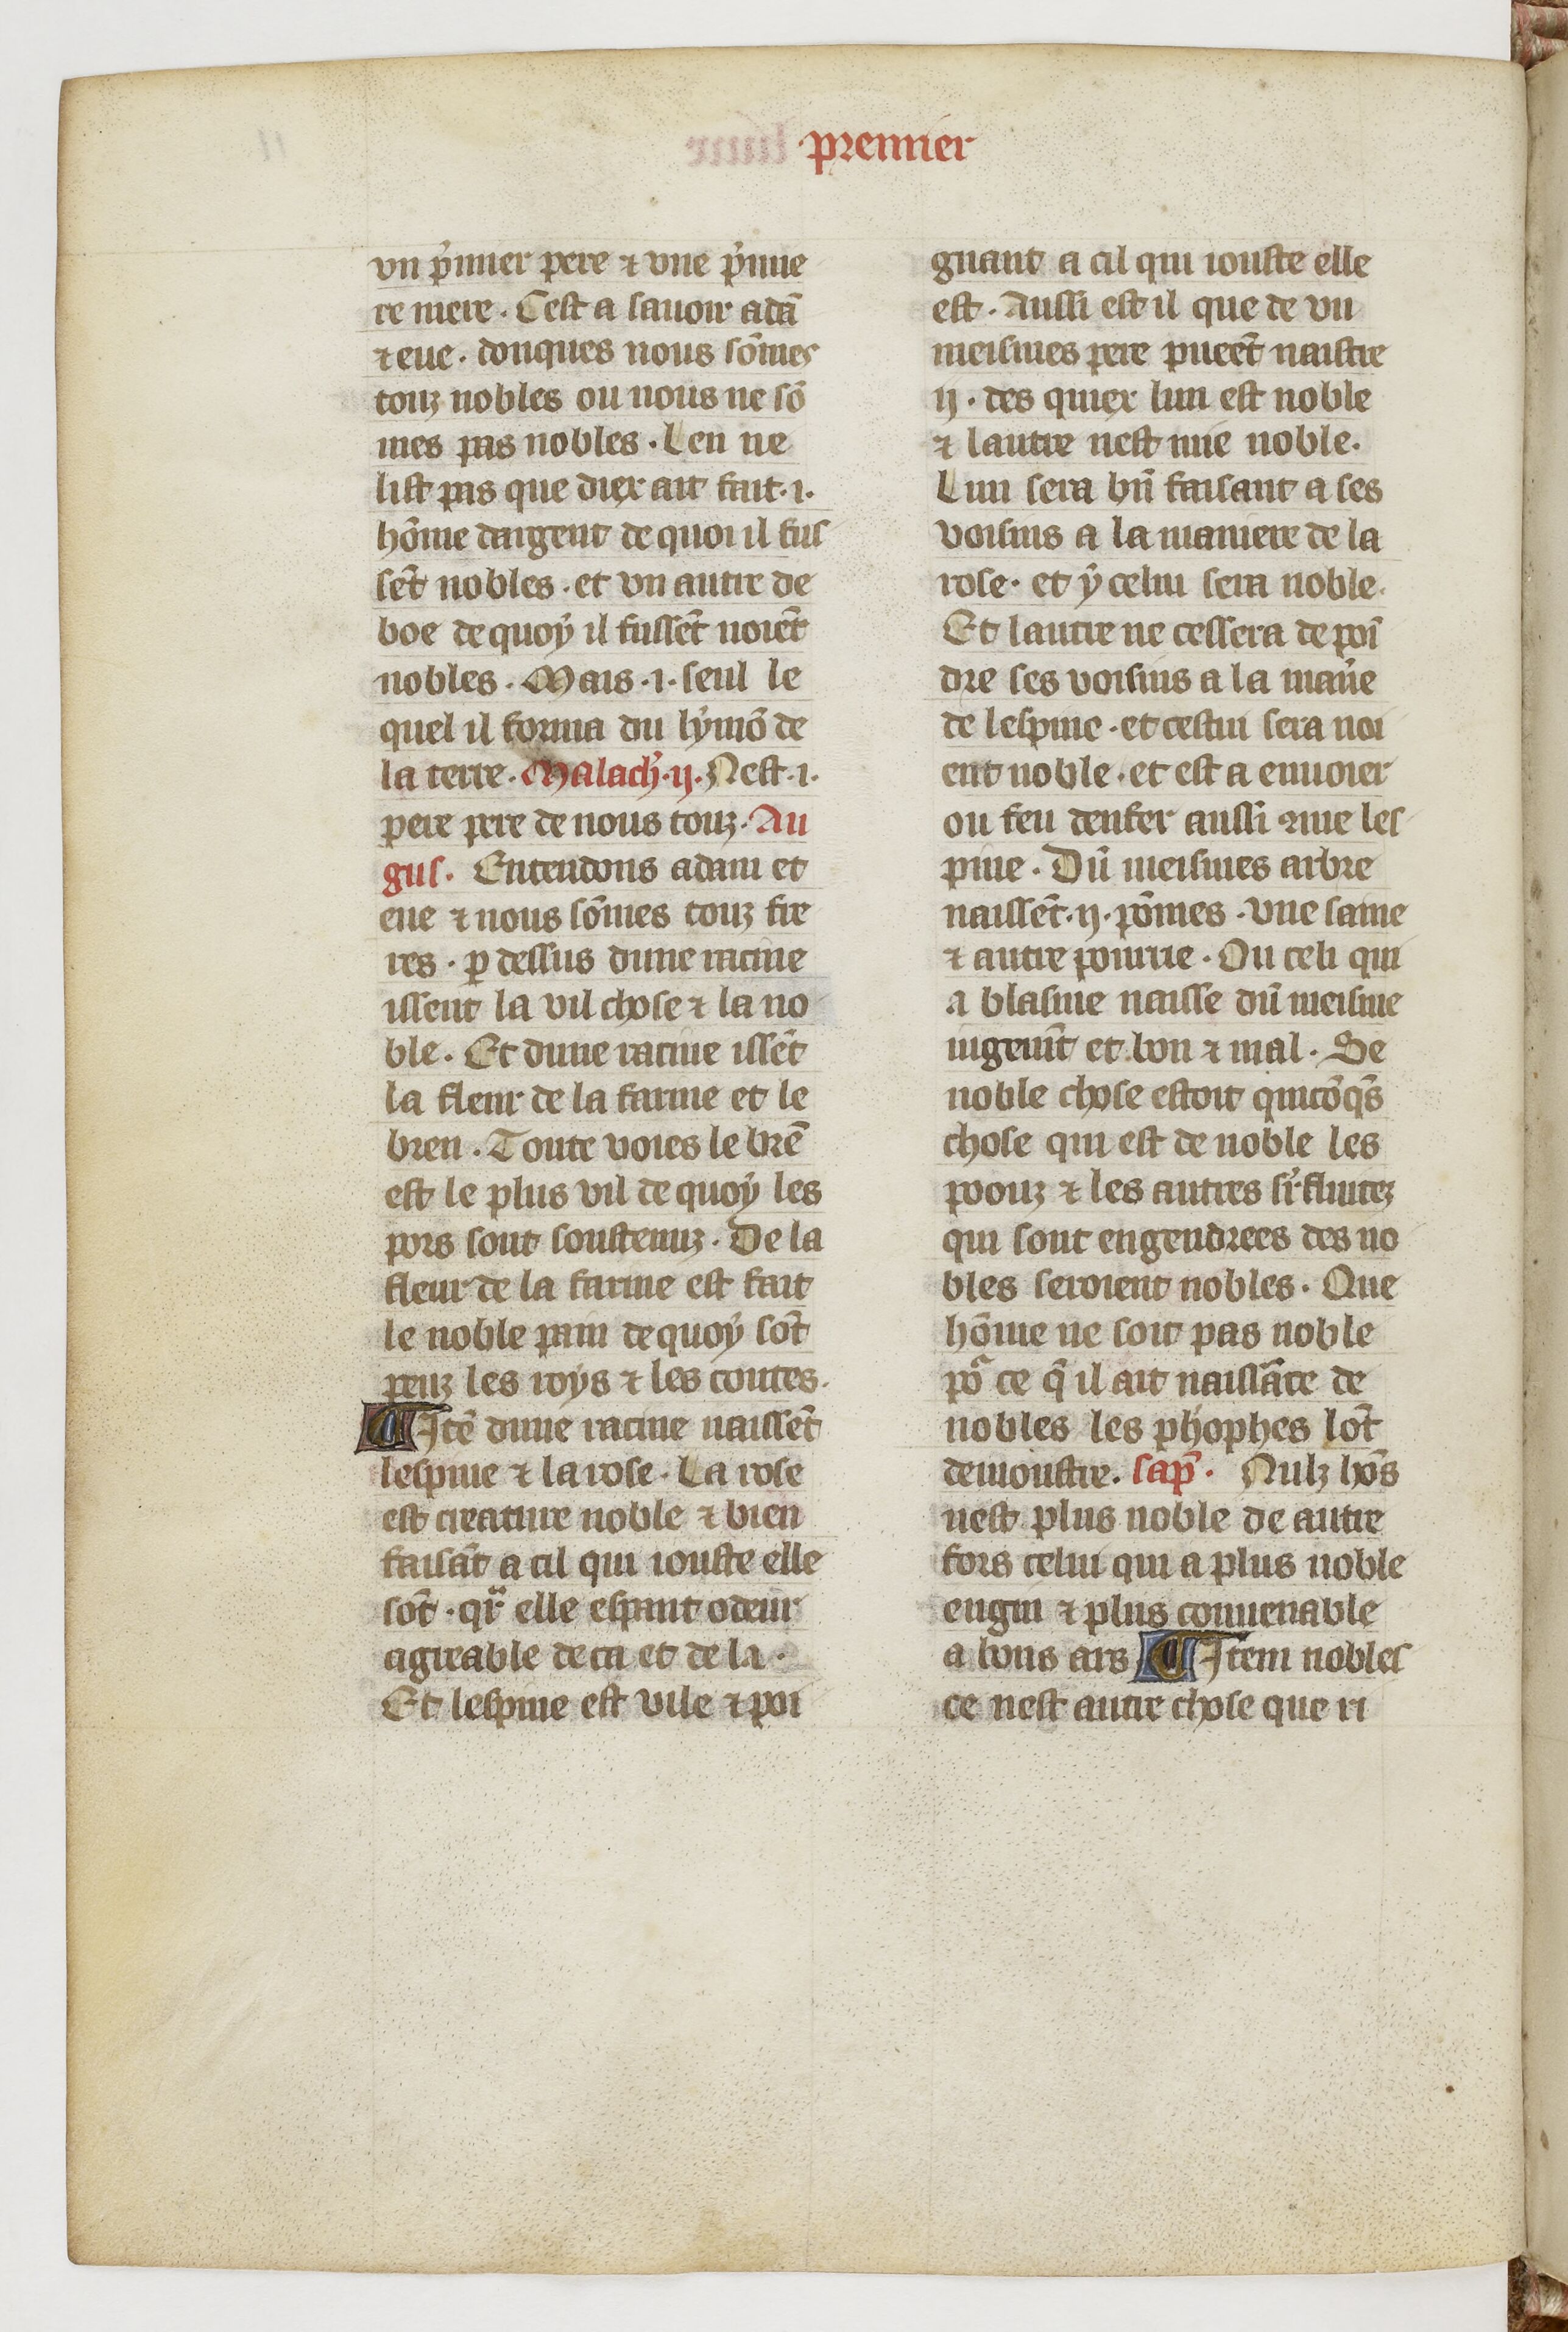 premier
vn p̾mier pere ⁊ vne p̾mie
re mere. Cest a sauoir adā
⁊ eue. donques nous sōmes
touz nobles ou nous ne sō
mes pas nobles. Len ne
list pas que diex ait fait .i.
hōme dargent de quoi il fus
sēt nobles. et vn autre de
boe de quoẏ il fussēt noiēt
nobles. Mais .i. seul le
quel il forma du lẏmō de
la terre. Malach̾. ij. Nest .i.
pere pere de nous touz. Au
gus. Entendons adam et
eue ⁊ nous sōmes touz fre
res. p dessus dune racine
issent la vil chose ⁊ la no
ble. Et dune racine issēt
la fleur de la farine et le
bren. Toute voies le brē
est le plus vil de quoẏ les
pors sont soustenuz. De la
fleur de la farine est fait
le noble pain de quoẏ sōt
peuz les roẏs ⁊ les contes.
¶ Itē dune racine naissēt
lespine ⁊ la rose. La rose
est creature noble ⁊ bien
faisāt a cil qui iouste elle
sōt. qͬ elle espant odeur
agreable de ca et de la.
Et lespine est vile ⁊ poi
gnant a cil qui iouste elle
est. Aussi est il que de vn
meismes pere pueēt naistre
ij. des quiex lun est noble
⁊ lautre nest mie noble.
Lun sera bn̄ faisant a ses
voisins a la maniere de la
rose. et ẏcelui sera noble.
Et lautre ne cessera de poī
dre ses voisins a la man̾e
de lespine. et cestui sera noi
ent noble. et est a enuoier
ou feu denfer aussi ꝯme les
pine. Dū meismes arbre
naissēt .ij. pōmes. vne saine
⁊ autre pourrie. Ou celi qui
a blasme naisse dū meisme
iugemt̄ et bon ⁊ mal. Se
noble chose estoit quicōqs̄
chose qui est de noble les
poouz ⁊ les autres sr̾fluitez
qui sont engendrees des no
bles seroient nobles. Que
hōme ne soit pas noble
poͬ ce q̄ il ait naissāce de
nobles les ph̾ophes lōt
demoustre. sap̄. Nulz hōs
nest plus noble de autre
fors celui qui a plus noble
engin ⁊ plus conuenable
a bons ars ¶ Item nobles
ce nest autre chose que ri